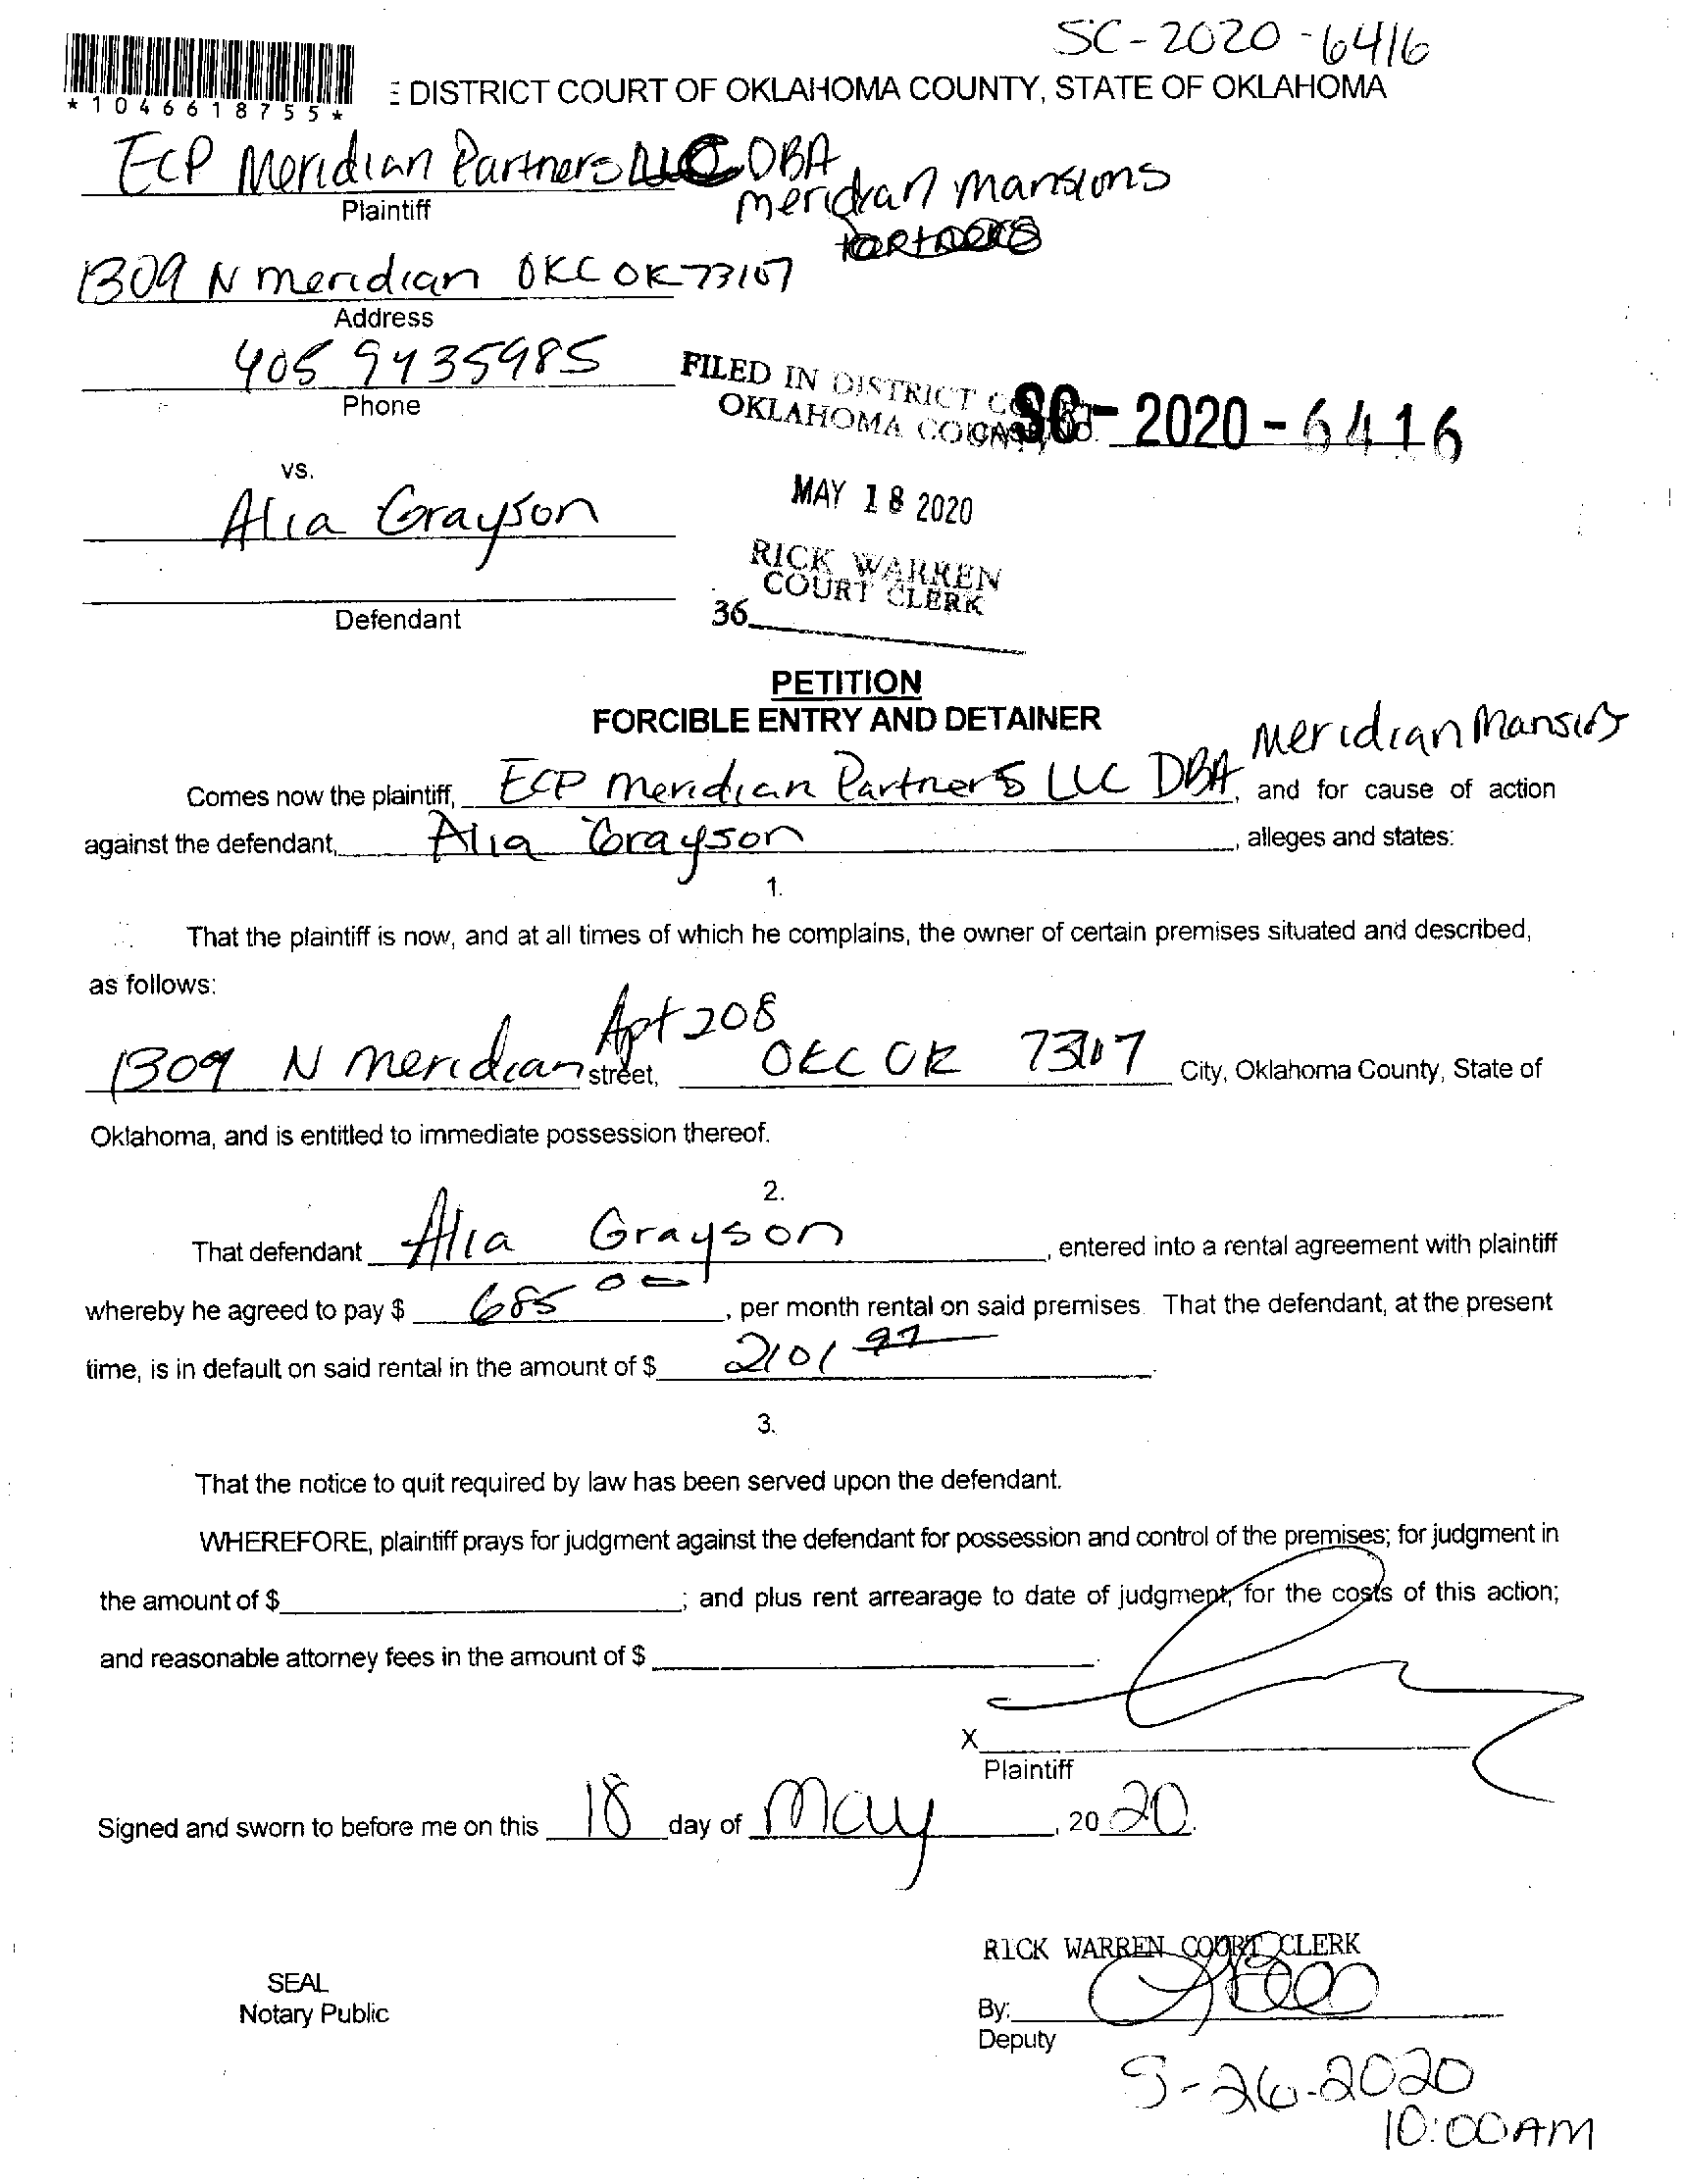 SC-2020-6416
*1046618755*
E DISTRICT COURT OF OKLAHOMA COUNTY, STATE OF OKLAHOMA
ECP Meridian Partners LLC DBA
meridian mansions
Plaintiff
Partners
1309 N meridian OKC OK 73107
Address
405 9435985
Phone
FILED IN DISTRICT COURT
OKLAHOMA COUNTY
CASE NO. SC-2020-6416
vs.
MAY 18 2020
Alia Grayson
RICK WARREN
COURT CLERK
36
Defendant
PETITION
FORCIBLE ENTRY AND DETAINER
Comes now the plaintiff, ECP meridian Partners LLC DBA Meridian Mansions, and for cause of action
against the defendant, Alia Grayson, alleges and states:
1.
That the plaintiff is now, and at all times of which he complains, the owner of certain premises situated and described,
as follows:
1309 N meridian Apt 208 street, OKC OK 73107 City, Oklahoma County, State of
Oklahoma, and is entitled to immediate possession thereof.
2.
That defendant Alia Grayson, entered into a rental agreement with plaintiff
whereby he agreed to pay $ 685 00, per month rental on said premises. That the defendant, at the present
time, is in default on said rental in the amount of $ 2101 97.
3.
That the notice to quit required by law has been served upon the defendant.
WHEREFORE, plaintiff prays for judgment against the defendant for possession and control of the premises; for judgment in
the amount of $ ; and plus rent arrearage to date of judgment, for the costs of this action;
and reasonable attorney fees in the amount of $ .
X
Plaintiff
Signed and sworn to before me on this 18 day of May, 20 20.
RICK WARREN COURT CLERK
SEAL
Notary Public
By:
Deputy
5-26-2020
10:00AM